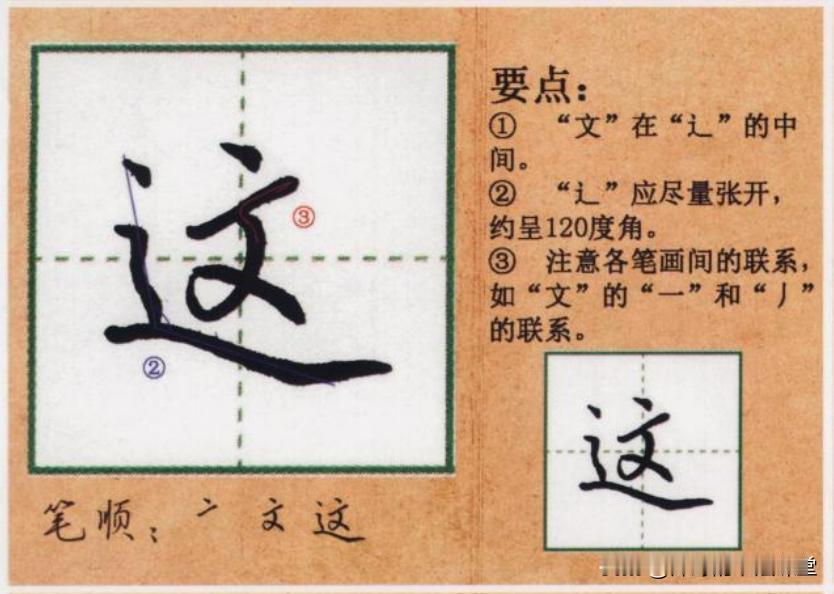 这
③
②
笔顺：亠 文 这
要点：
① “文”在“辶”的中
间。
② “辶”应尽量张开，
约呈120度角。
③ 注意各笔画间的联系，
如“文”的“一”和“丿”
的联系。
这